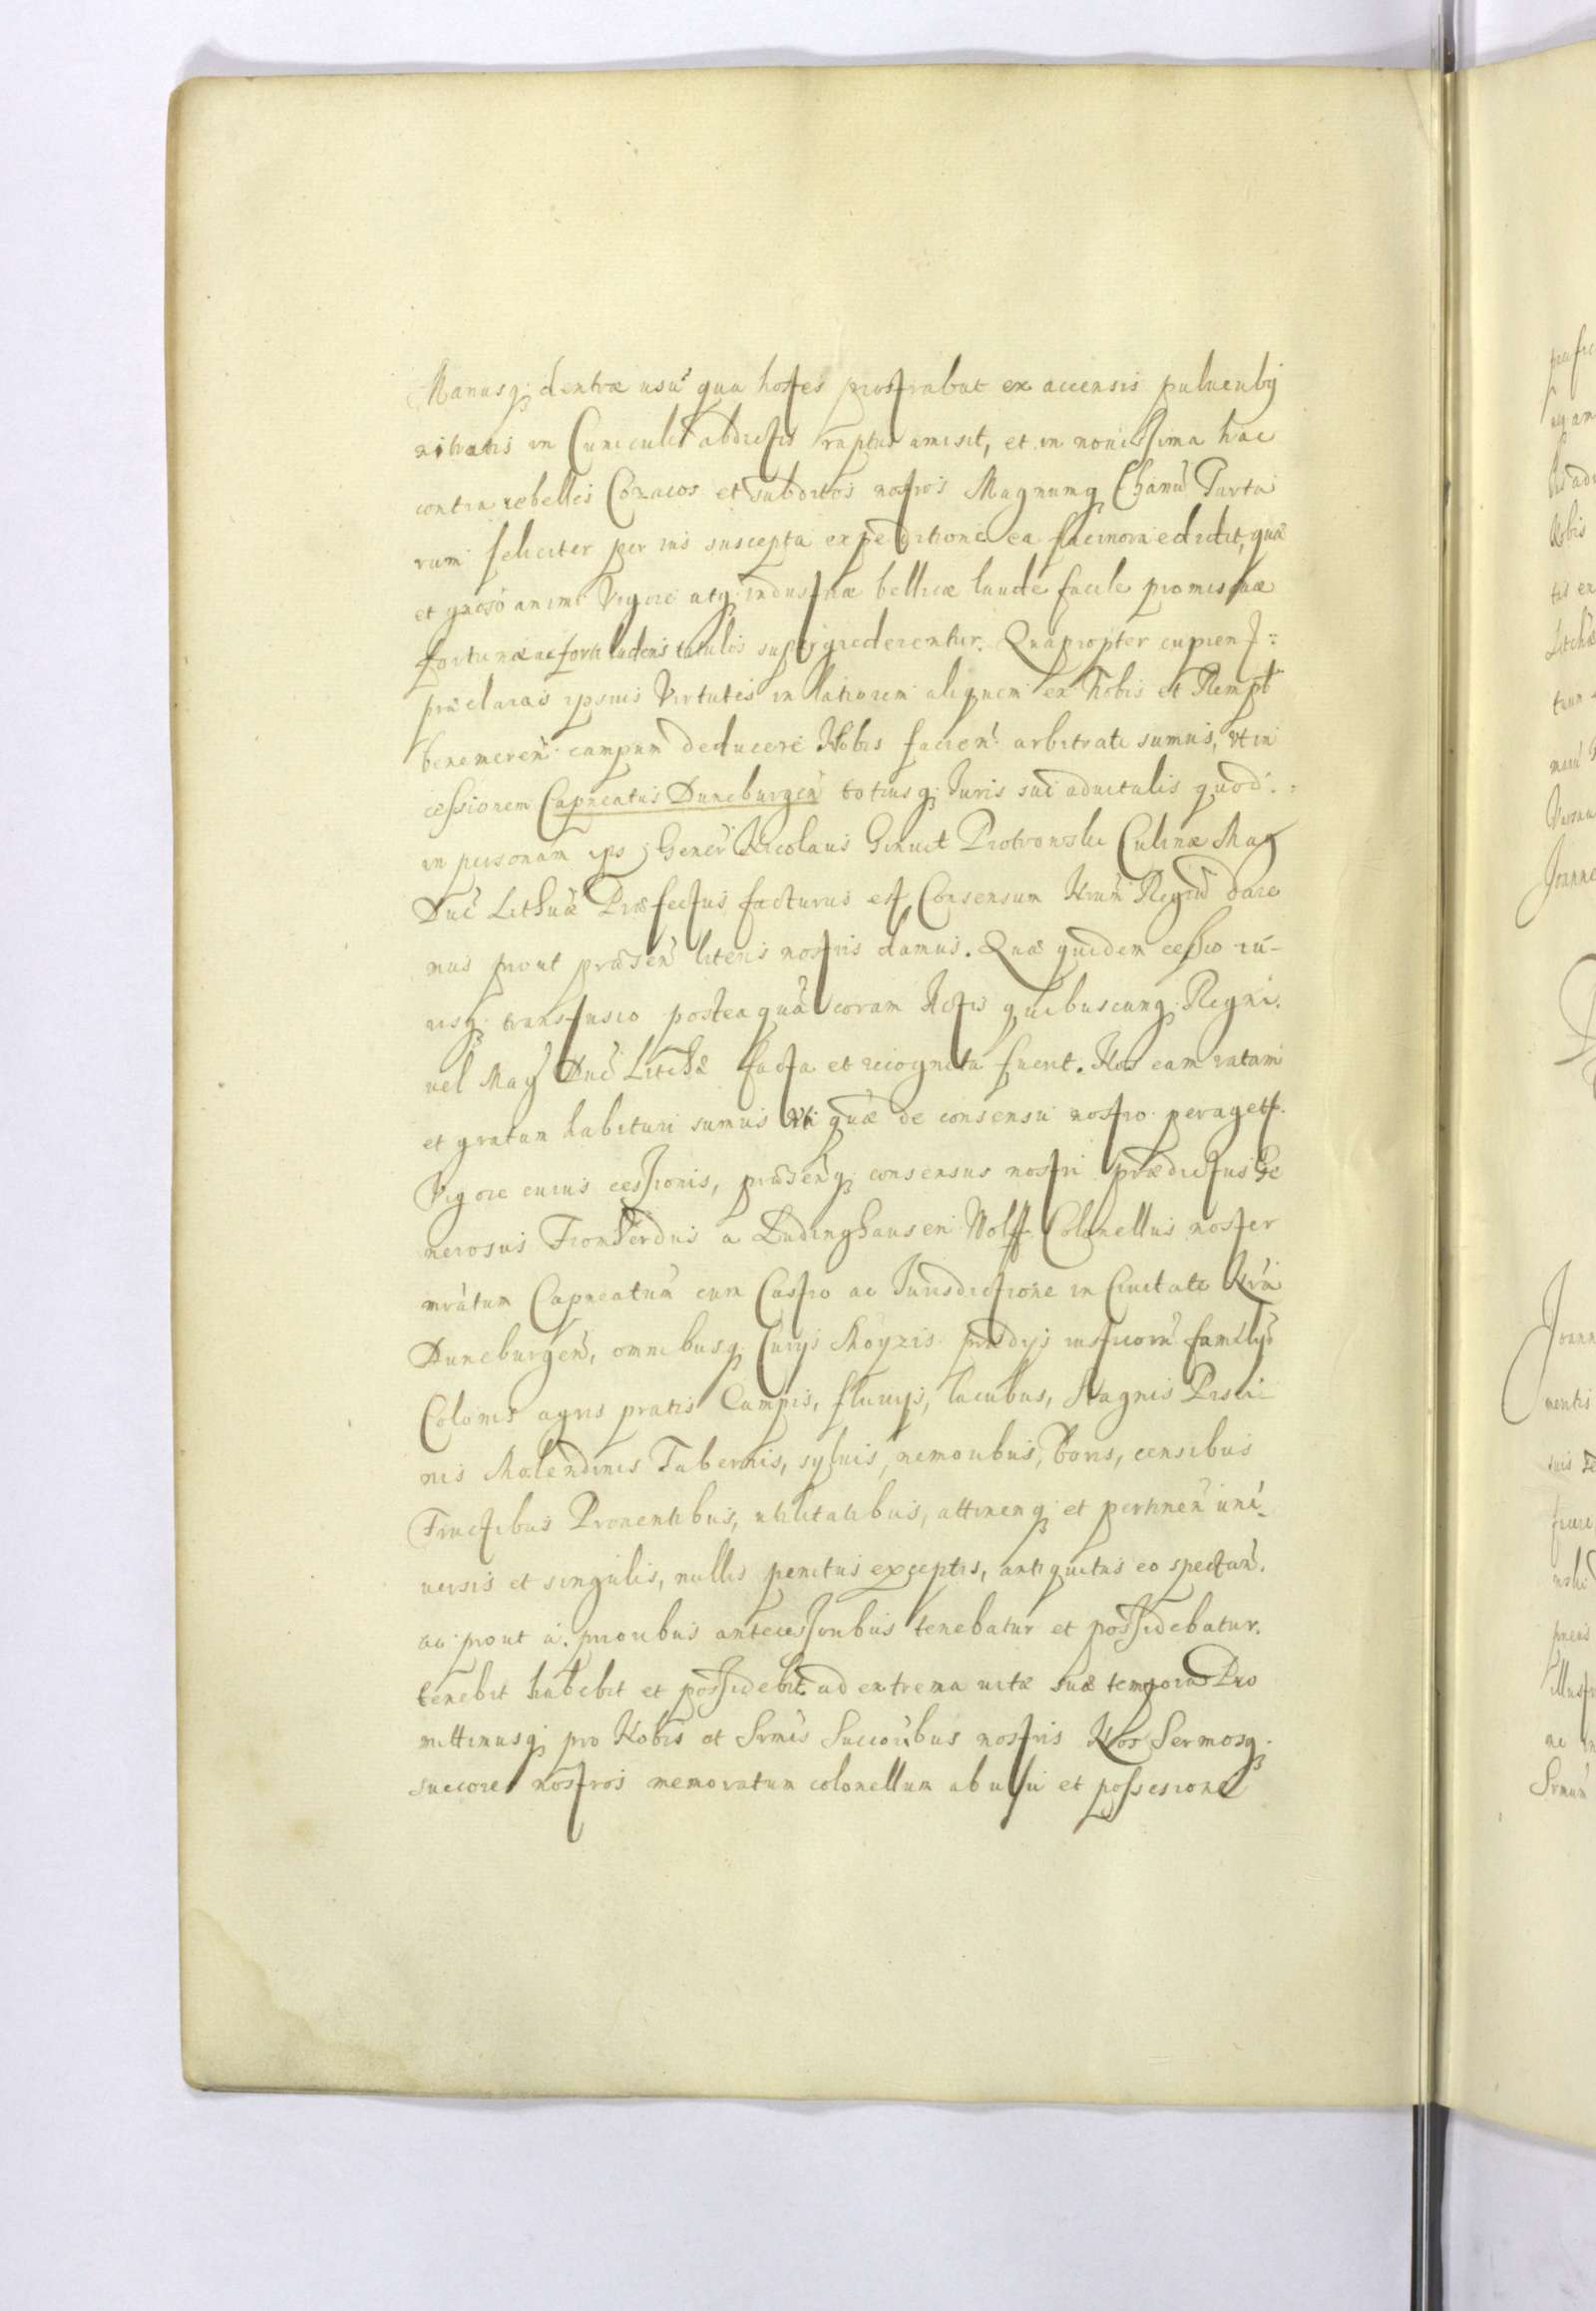 Manusq; dextræ usu qua hostes prostrabat ex accensis puluerib9
nitratis in Cuniculis abdictis raptus amisit, et in nouissima hac
contra rebelles Cozacos et subditos nostros Magnumq Chanu Tarta
rum feliciter per nos suscepta expeditione ea facinora edidit, quæ
et gnoso animi Vigore atq; industriæ bellicæ laude facile promissuæ
fortunæ ac fortitudinis titulis supergrederentur. Quapropter cupien
præclaras ipsius Virtutes in latiorem aliquem ex Nobis et Rempb
benemeren campum deducere Nobis facien arbitrati sumus, vt in
cessionem Capneatus Duneburgen totiusq; Juris sui aduitalis quod
in personam ips Gener Nicolaus Piotrowski Culinæ Mag
Duc Lithuæ Præfectus facturus est Consensum Nrum Regiu dare
mus prout præsen literis nostris damus. Quæ quidem cessio iu-
risq; transfusio postea quã coram Actis quibuscunq; Regni
uel Mag Duc Lithæ facta et recognita fuerit. Nos eam ratam
et gratam habituri sumus vti quæ de consensu nostro peraget.
Vigore cuius cessionis, præsenq; consensus nostri prædictus Ge
nerosus Fromherdus a Ludinghausen Wolff Colonellus noster
mratum Capneatum cum Castro ac Jurisdictione in Ciuitate Nra
Duneburgen, omnibusq; Curijs Moyzis prædijs rusticoru familijs
Colonis agris pratis Campis, fluuijs, lacubus, Stagnis Pisci
nis Molendinis Tabernis, syluis, nemoribus, boris, censibus
Fructibus Prouentibus, utilitatibus, attinenq; et pertinen uni-
uersis et singulis, nullis penitus exceptis, antiquitus eo spectan.
ac prout a prioribus antecessoribus tenebatur et possidebatur.
tenebit habebit et possidebit ad extrema uitæ suæ tempora Pro
mittimusq; pro Nobis et Srmis Succoribus nostris Nos Sermosq;
succores nostros memoratum colonellum ab usu et possesione